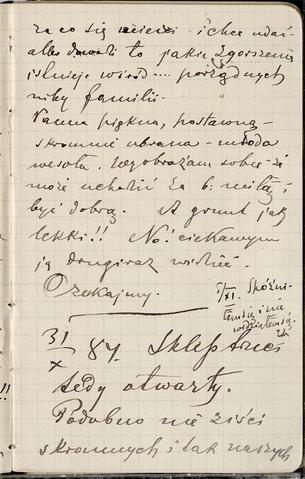 za co się mieni i chce udać
albo to jakie zgorszenie
istnieje wśród .... porządnych
niby familii.
Panna piękna, postawna –
skromnie ubrana – młoda
wesoła. Wyobrażam sobie – że
może uchodzić za b. miłą i
być dobrą. A grunt jak
lekki!! No! ciekawym
ją drugi raz widzieć.
Oczekajmy.
5/XI. Spóźni-
łem się i nie
widziałem się
31/X 84. Sklep
tedy otwarty.
Podobno nie ziści
skromnych i tak naszych